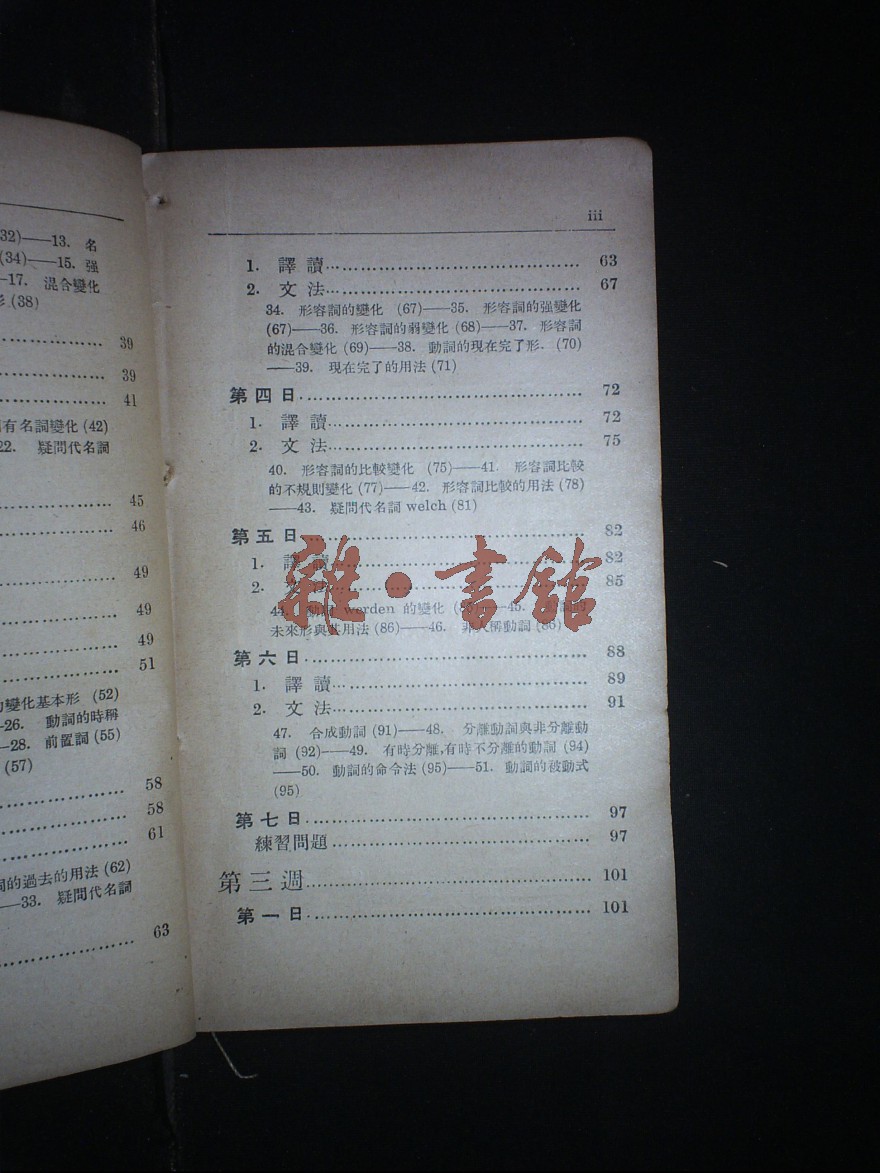 32)——13. 名
(34)——15. 强
17. 混合變化
(38)
39
39
41
有名詞變化 (42)
22. 疑問代名詞
45
46
49
49
49
51
變化基本形 (52)
26. 動詞的時稱
28. 前置詞 (55)
(57)
58
58
61
的過去的用法 (62)
——33. 疑問代名詞
63
iii
1. 譯 讀 63
2. 文 法 67
34. 形容詞的變化 (67)——35. 形容詞的强變化
(67)——36. 形容詞的弱變化 (68)——37. 形容詞
的混合變化 (69)——38. 動詞的現在完了形. (70)
——39. 現在完了的用法 (71)
第四日 72
1. 譯 讀 72
2. 文 法 75
40. 形容詞的比較變化 (75)——41. 形容詞比較
的不規則變化 (77)——42. 形容詞比較的用法 (78)
——43. 疑問代名詞 welch (81)
第五日 82
1. 譯 讀 82
2. 文 法 85
雜·書館
44. 動詞 werden 的變化 ——45. 的
未來形與其用法 (86)——46. 非人稱動詞 (86)
第六日 88
1. 譯 讀 89
2. 文 法 91
47. 合成動詞 (91)——48. 分離動詞與非分離動
詞 (92)——49. 有時分離,有時不分離的動詞 (94)
——50. 動詞的命令法 (95)——51. 動詞的被動式
(95)
第七日 97
練習問題 97
第三週 101
第一日 101